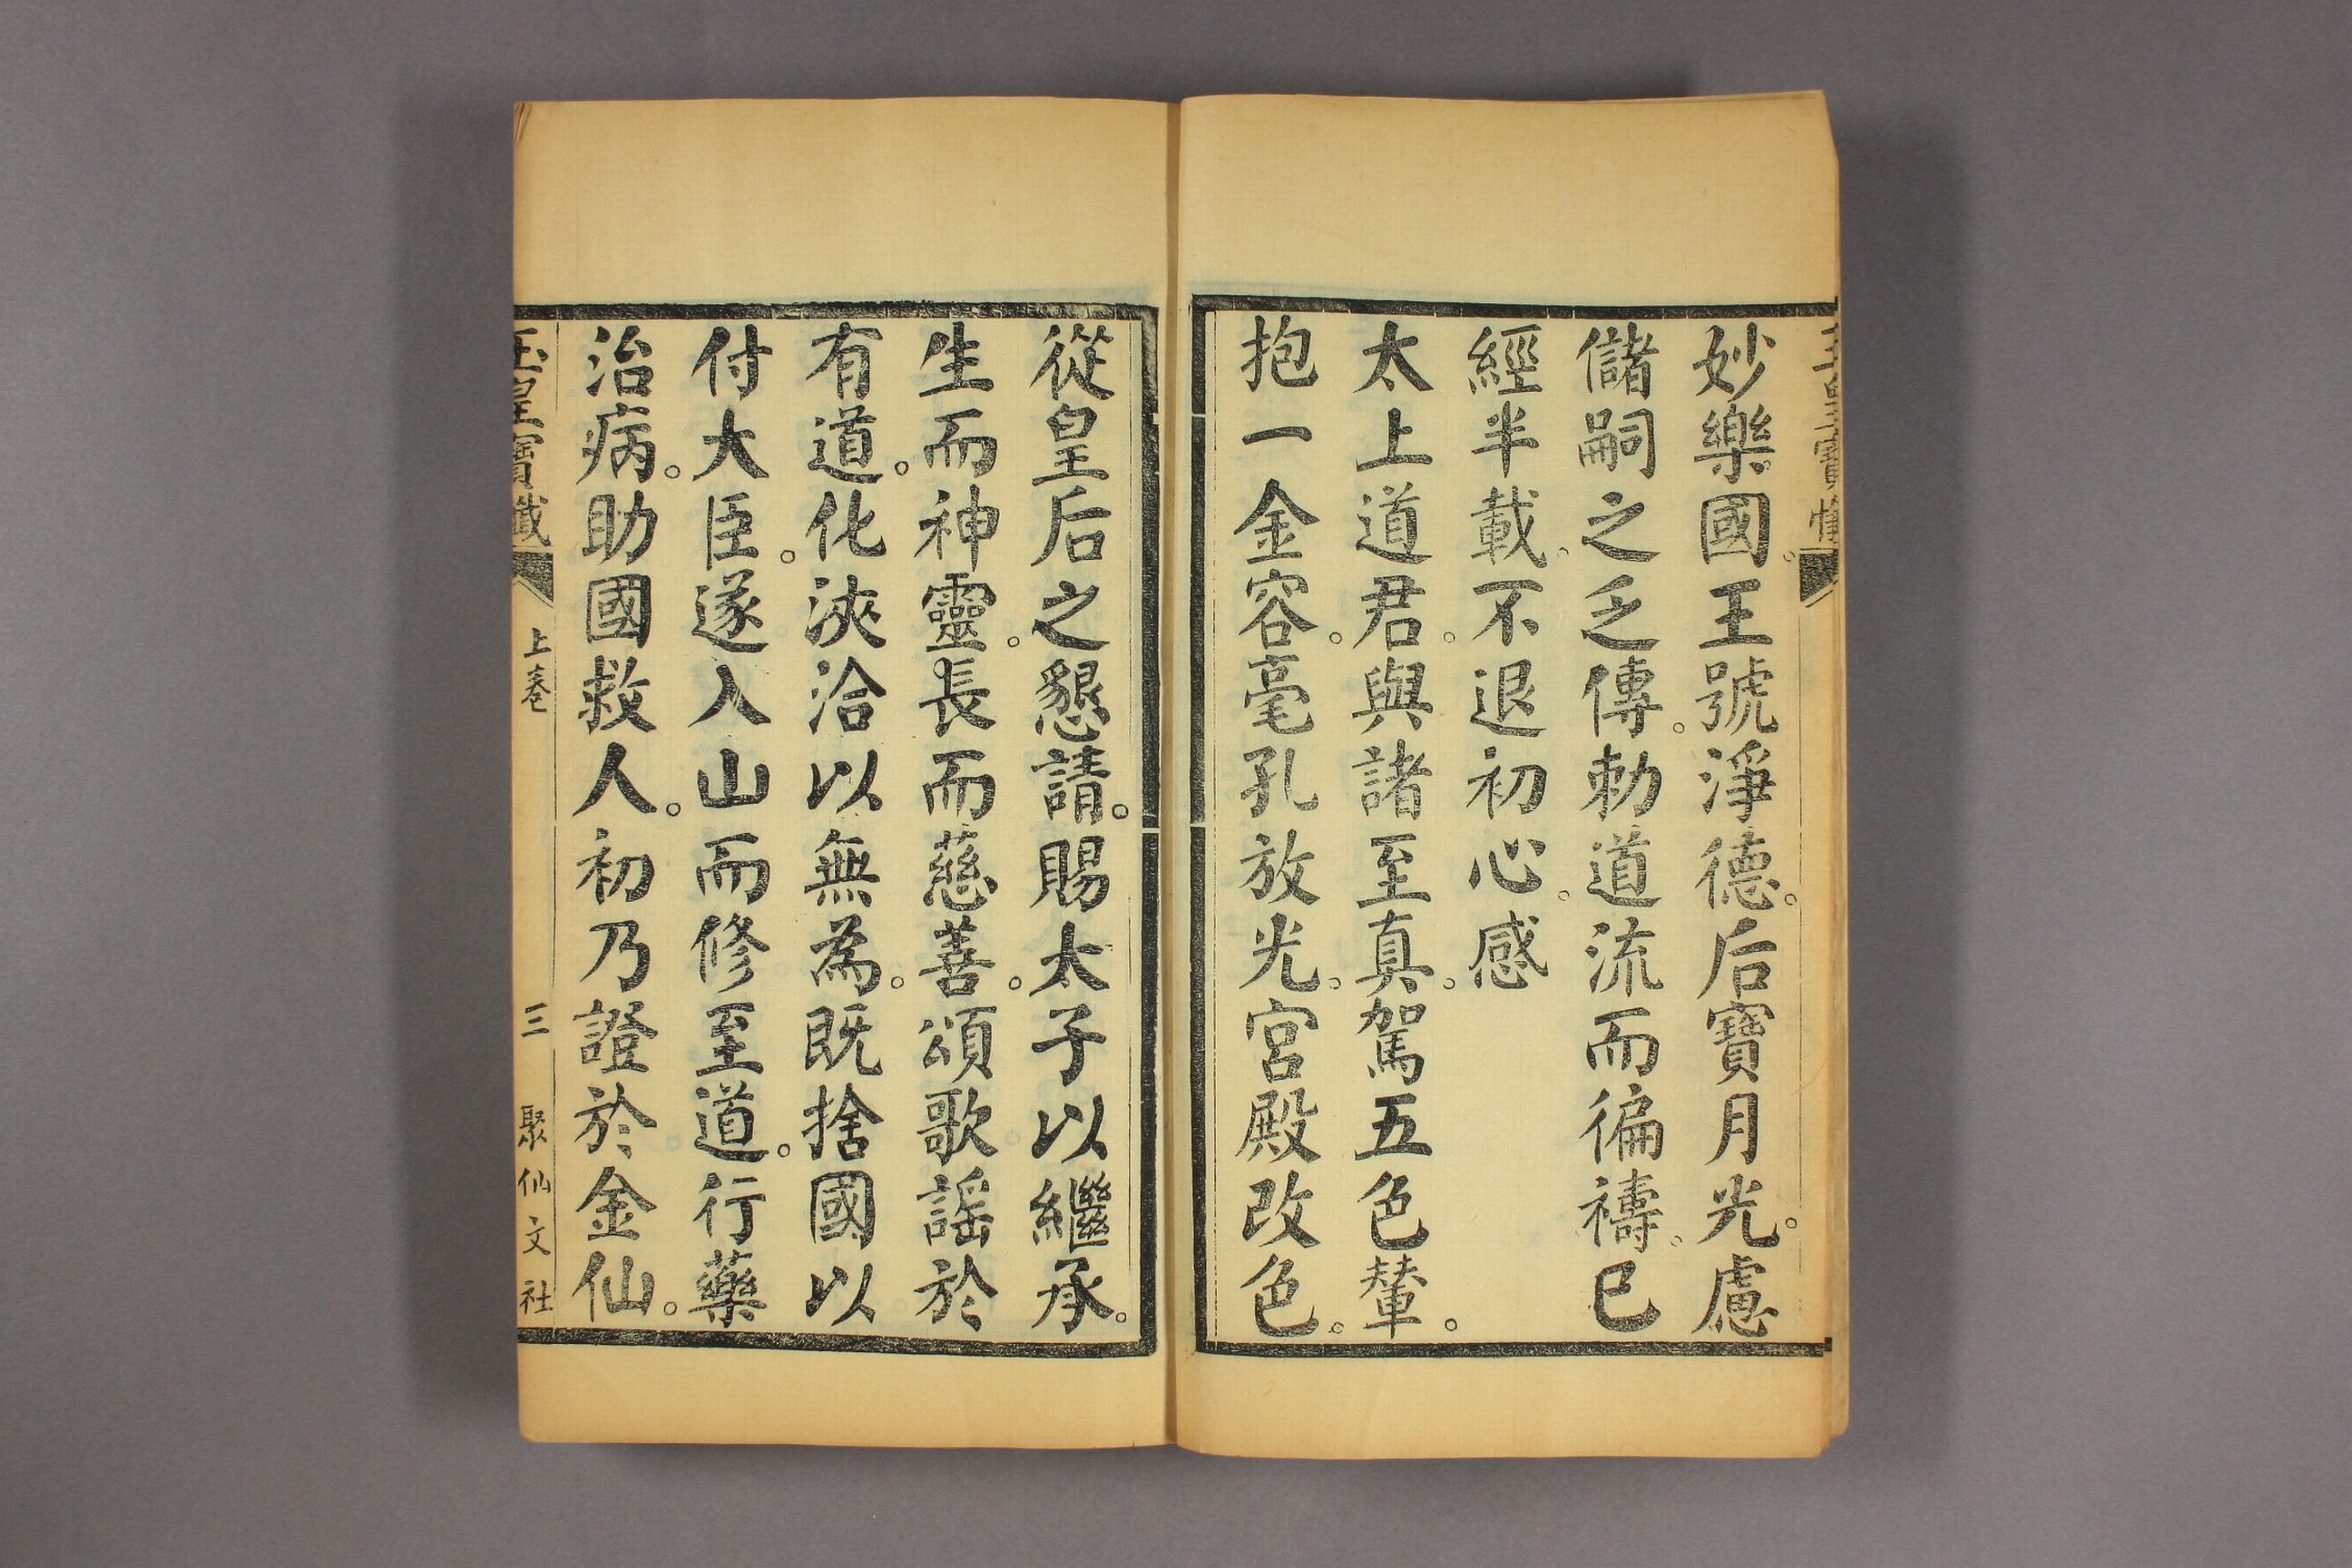 妙樂國王號淨德。后寶月光。慮
儲嗣之乏傳。勅道流而徧禱。已
經半載。不退初心。感
太上道君。與諸至真。駕五色輦。
抱一金容。毫孔放光。宮殿改色。
從皇后之懇請。賜太子以繼承。
生而神靈。長而慈善。頌歌謠於
有道。化浹洽以無為。既捨國以
付大臣。遂入山而修至道。行藥
治病。助國救人。初乃證於金仙。
玉皇寶懺 上卷 三 聚仙文社